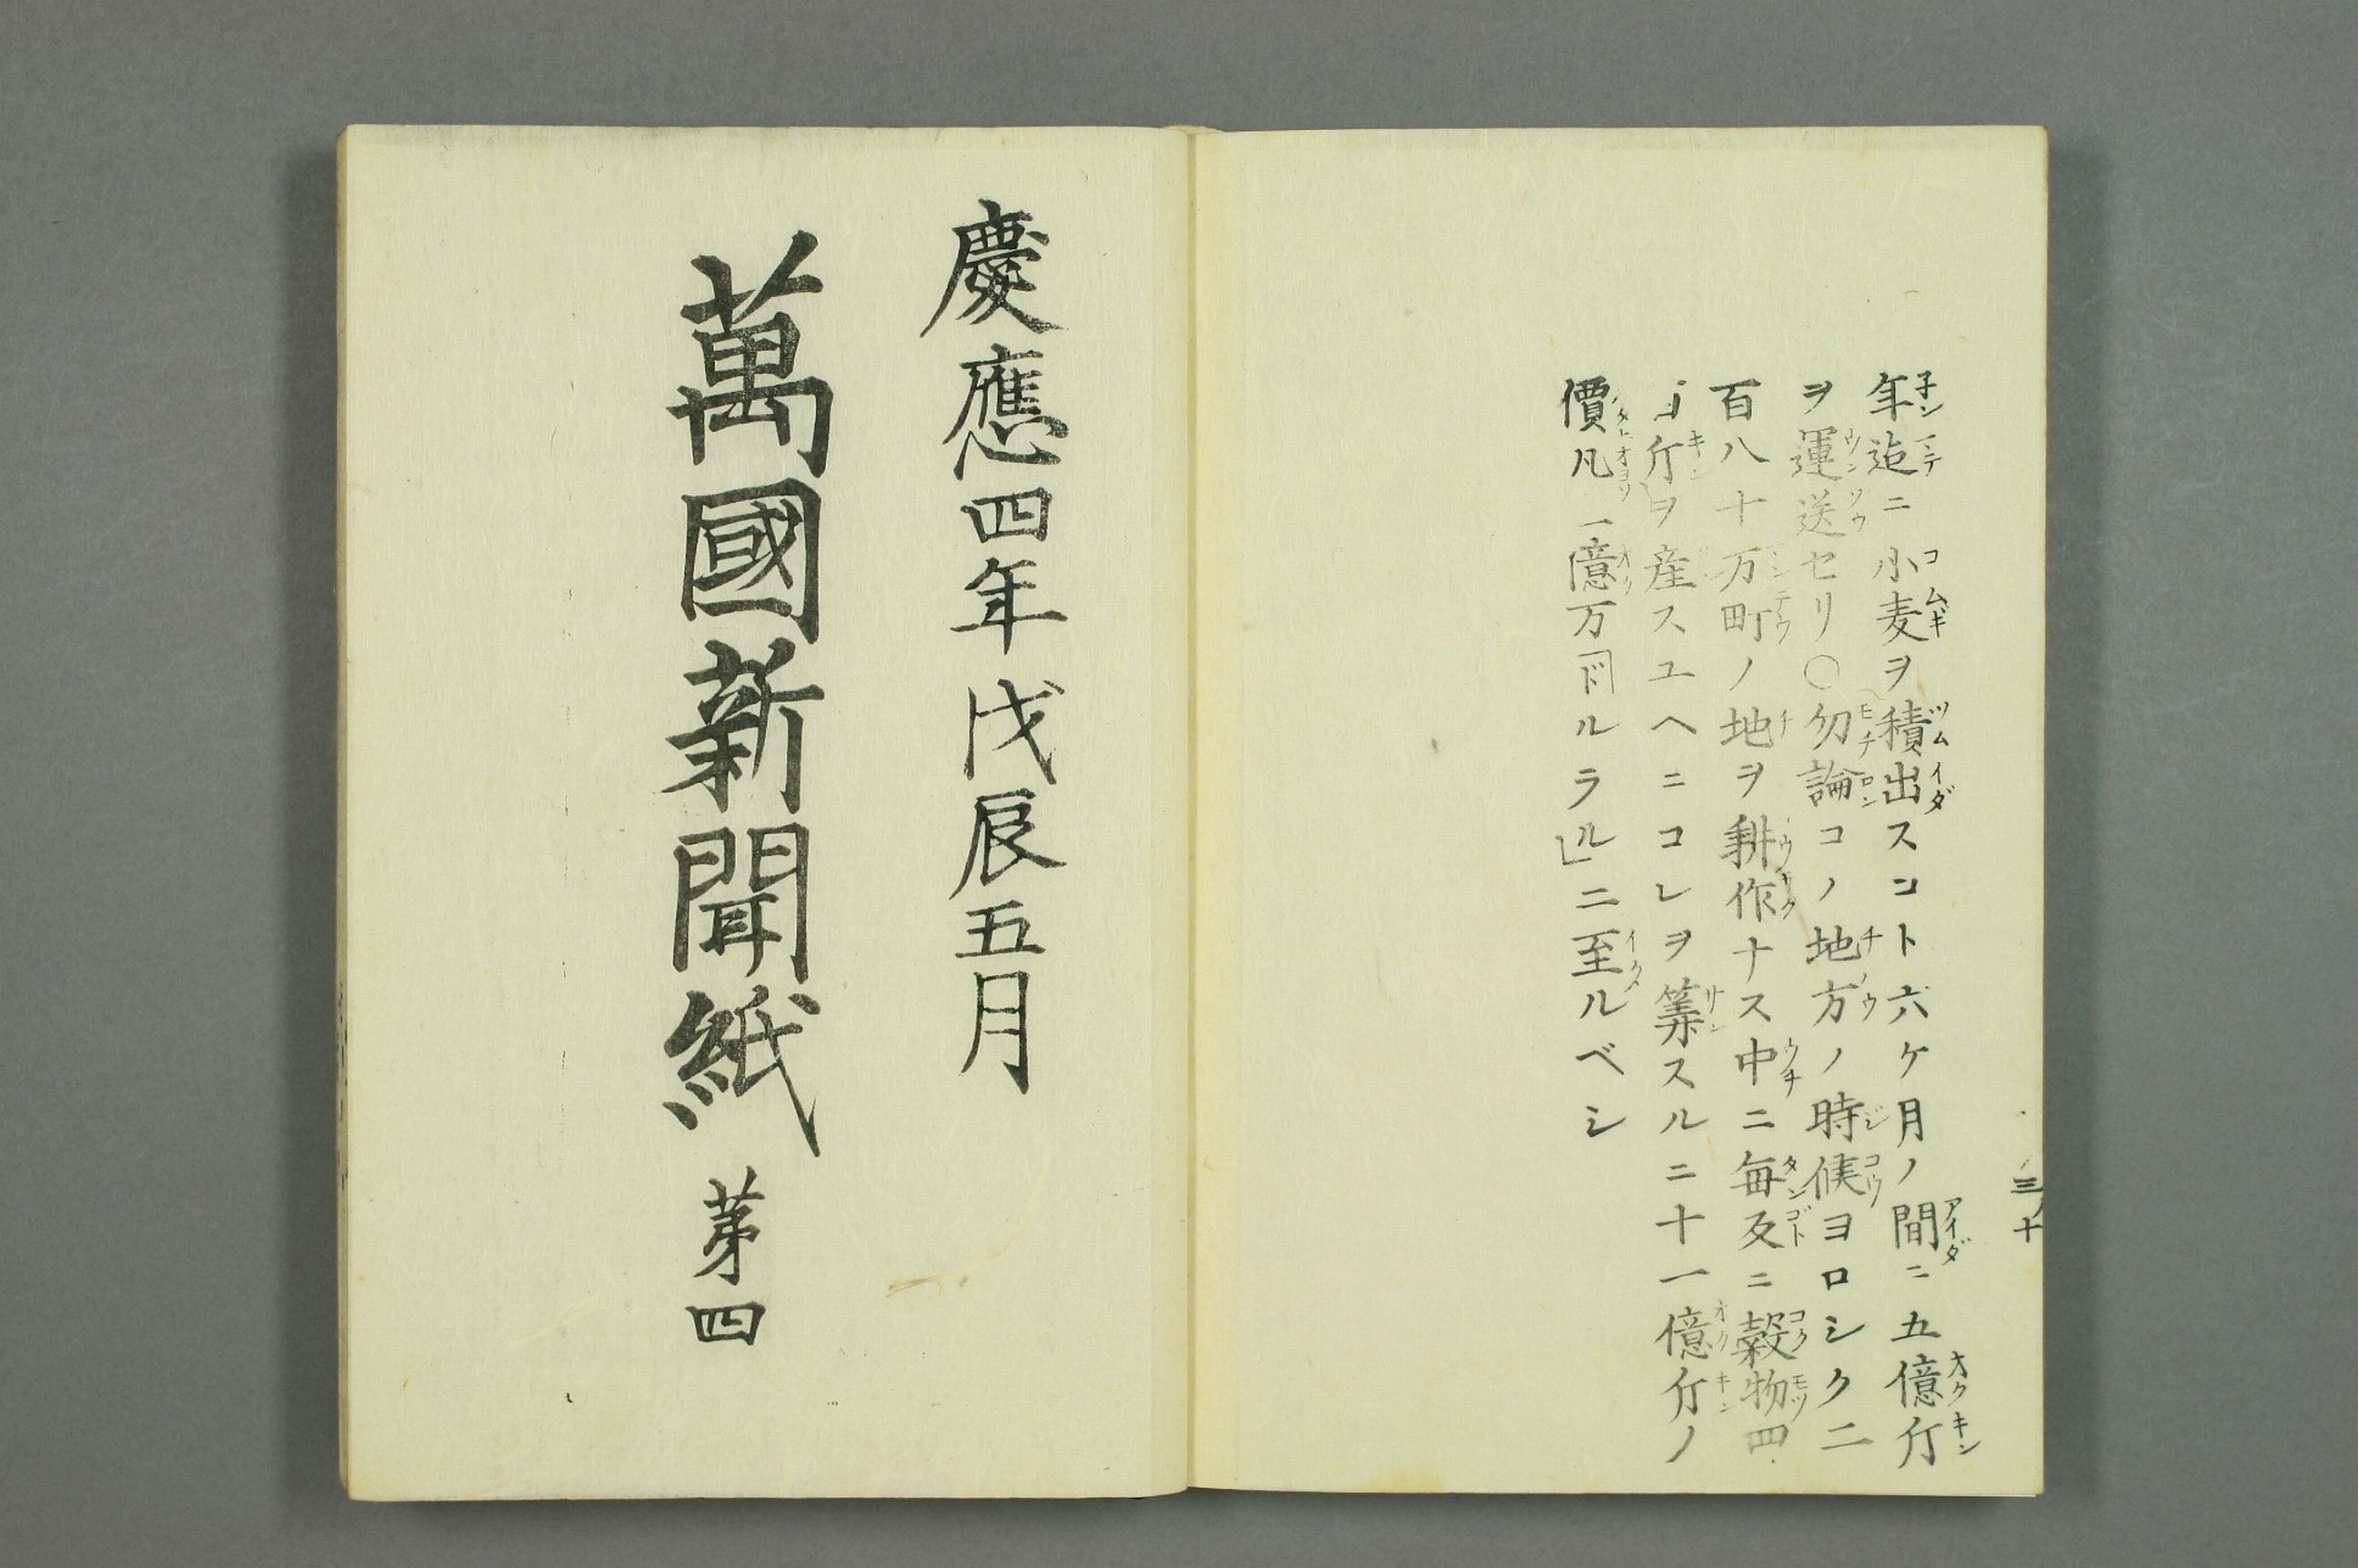 年迠ニ小麦ヲ積出スコト六ケ月ノ間ニ五億斤
ヲ運送セリ〇勿論コノ地方ノ時候ヨロシク二
百八十万町ノ地ヲ耕作ナス中ニ毎反ニ穀物四
斤ヲ産スユヘニコレヲ筭スルニ十一億斤ノ
價凡一億万「ドルラル」ニ至ルベシ
三ノ十
慶應四年戊辰五月
萬國新聞紙 苐四